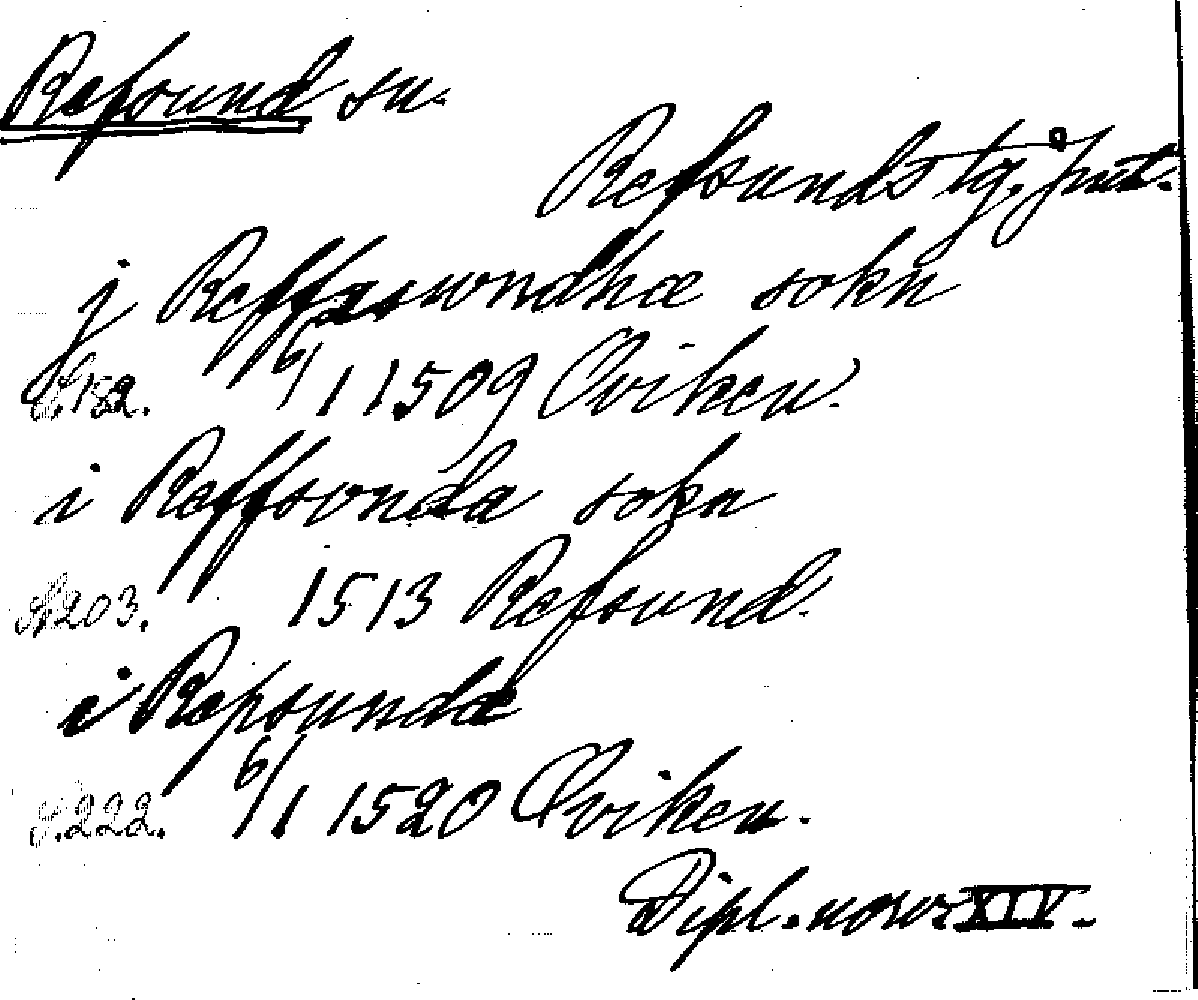 Refsund sn.
Refsunds tg, Jmt.
j Reffswndhæ sokn
S. 182. 6/1 1509 Oviken.
i Reffsvnda sokn
S. 203. 1513 Refsund.
i Repsundæ
S. 222. 6/1 1520 Oviken.
Dipl. norv. XIV.